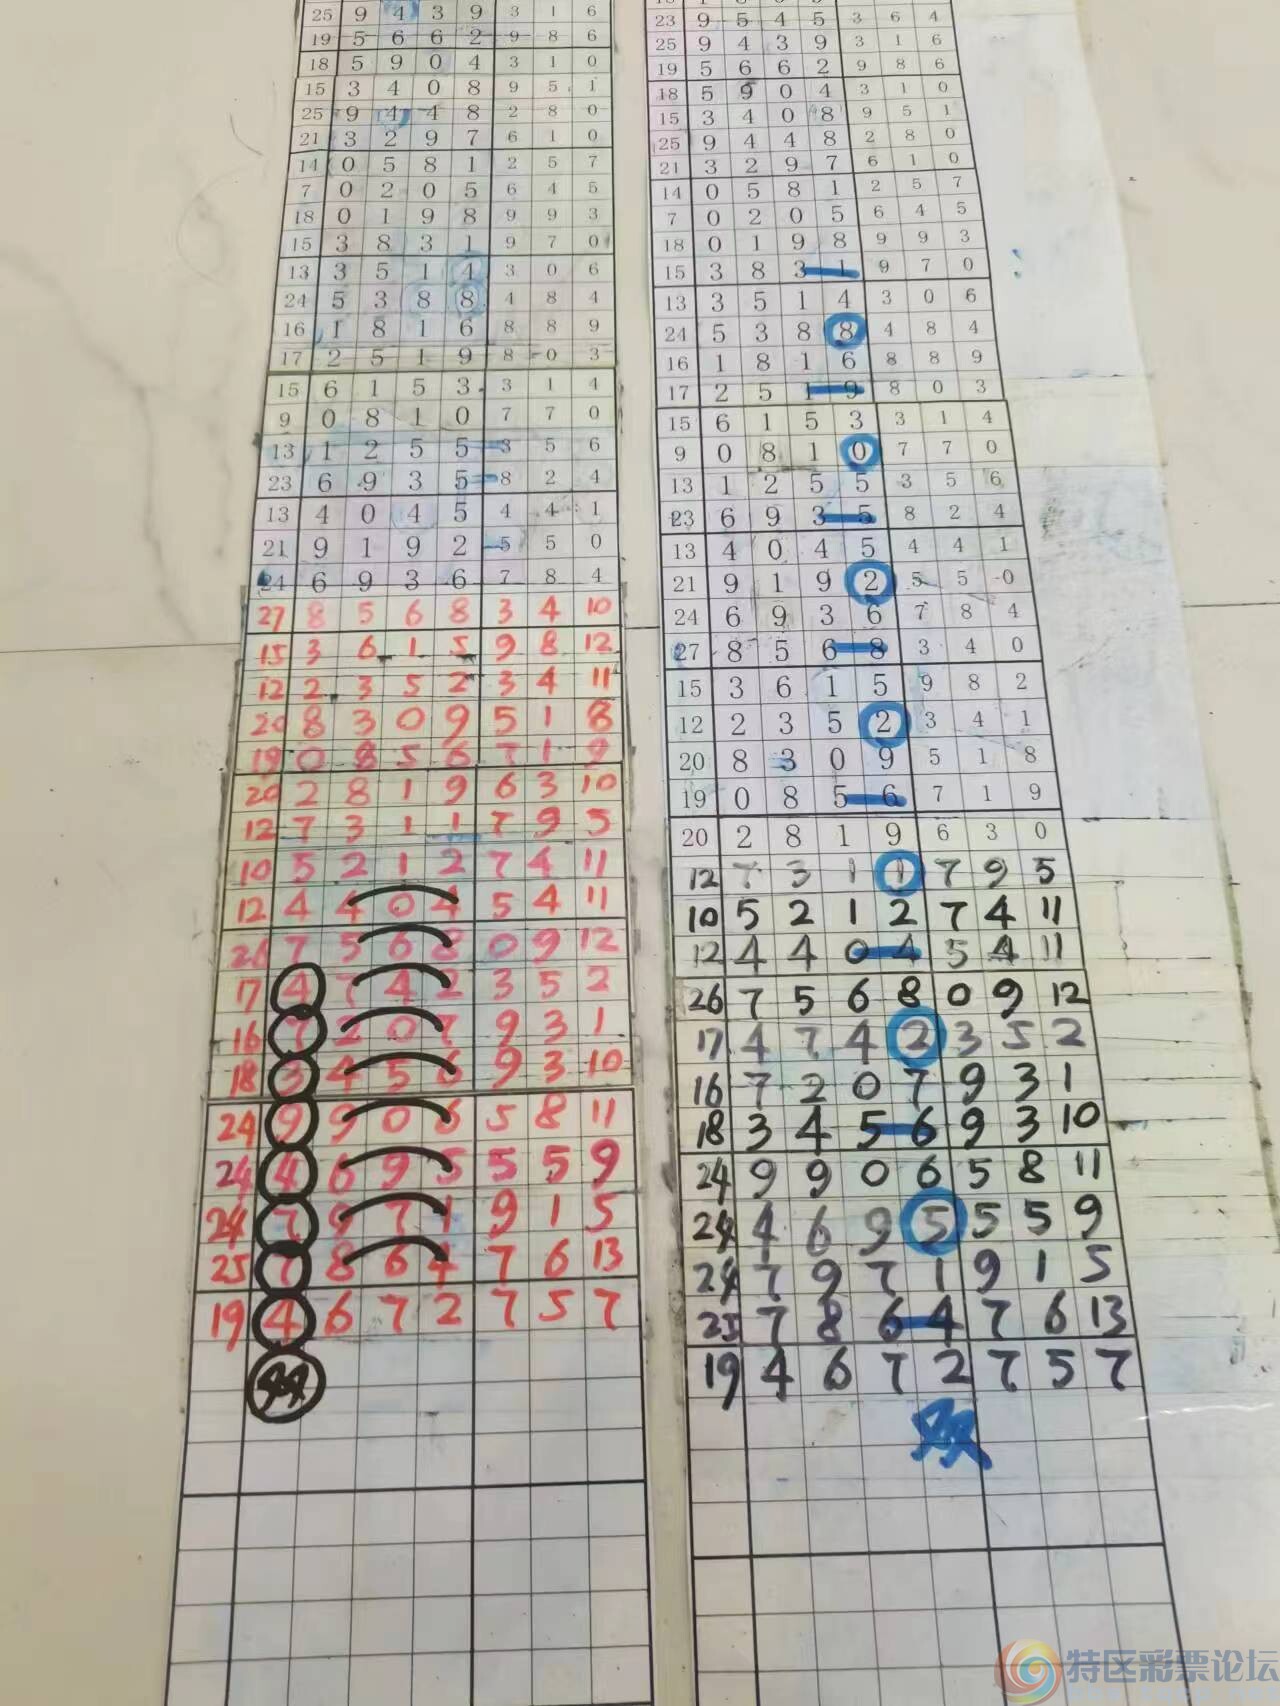 25 9 4 3 9 3 1 6
19 5 6 6 2 9 8 6
18 5 9 0 4 3 1 0
15 3 4 0 8 9 5 1
25 9 4 4 8 2 8 0
21 3 2 9 7 6 1 0
14 0 5 8 1 2 5 7
7 0 2 0 5 6 4 5
18 0 1 9 8 9 9 3
15 3 8 3 1 9 7 0
13 3 5 1 4 3 0 6
24 5 3 8 8 4 8 4
16 1 8 1 6 8 8 9
17 2 5 1 9 8 0 3
15 6 1 5 3 3 1 4
9 0 8 1 0 7 7 0
13 1 2 5 5 3 5 6
23 6 9 3 5 8 2 4
13 4 0 4 5 4 4 1
21 9 1 9 2 5 5 0
24 6 9 3 6 7 8 4
27 8 5 6 8 3 4 10
15 3 6 1 5 9 8 12
12 2 3 5 2 3 4 11
20 8 3 0 9 5 1 8
19 0 8 5 6 7 1 9
20 2 8 1 9 6 3 10
12 7 3 1 1 7 9 5
10 5 2 1 2 7 4 11
12 4 4 0 4 5 4 11
26 7 5 6 8 0 9 12
17 4 7 4 2 3 5 2
16 7 2 0 7 9 3 1
18 3 4 5 6 9 3 10
24 9 9 0 6 5 8 11
24 4 6 9 5 5 5 9
24 7 9 7 1 9 1 5
25 7 8 6 4 7 6 13
19 4 6 7 2 7 5 7
双
23 9 5 4 5 3 6 4
25 9 4 3 9 3 1 6
19 5 6 6 2 9 8 6
18 5 9 0 4 3 1 0
15 3 4 0 8 9 5 1
25 9 4 4 8 2 8 0
21 3 2 9 7 6 1 0
14 0 5 8 1 2 5 7
7 0 2 0 5 6 4 5
18 0 1 9 8 9 9 3
15 3 8 3 1 9 7 0
13 3 5 1 4 3 0 6
24 5 3 8 8 4 8 4
16 1 8 1 6 8 8 9
17 2 5 1 9 8 0 3
15 6 1 5 3 3 1 4
9 0 8 1 0 7 7 0
13 1 2 5 5 3 5 6
23 6 9 3 5 8 2 4
13 4 0 4 5 4 4 1
21 9 1 9 2 5 5 0
24 6 9 3 6 7 8 4
27 8 5 6 8 3 4 0
15 3 6 1 5 9 8 2
12 2 3 5 2 3 4 1
20 8 3 0 9 5 1 8
19 0 8 5 6 7 1 9
20 2 8 1 9 6 3 0
12 7 3 1 1 7 9 5
10 5 2 1 2 7 4 11
12 4 4 0 4 5 4 11
26 7 5 6 8 0 9 12
17 4 7 4 2 3 5 2
16 7 2 0 7 9 3 1
18 3 4 5 6 9 3 10
24 9 9 0 6 5 8 11
24 4 6 9 5 5 5 9
24 7 9 7 1 9 1 5
25 7 8 6 4 7 6 13
19 4 6 7 2 7 5 7
双
特区彩票论坛